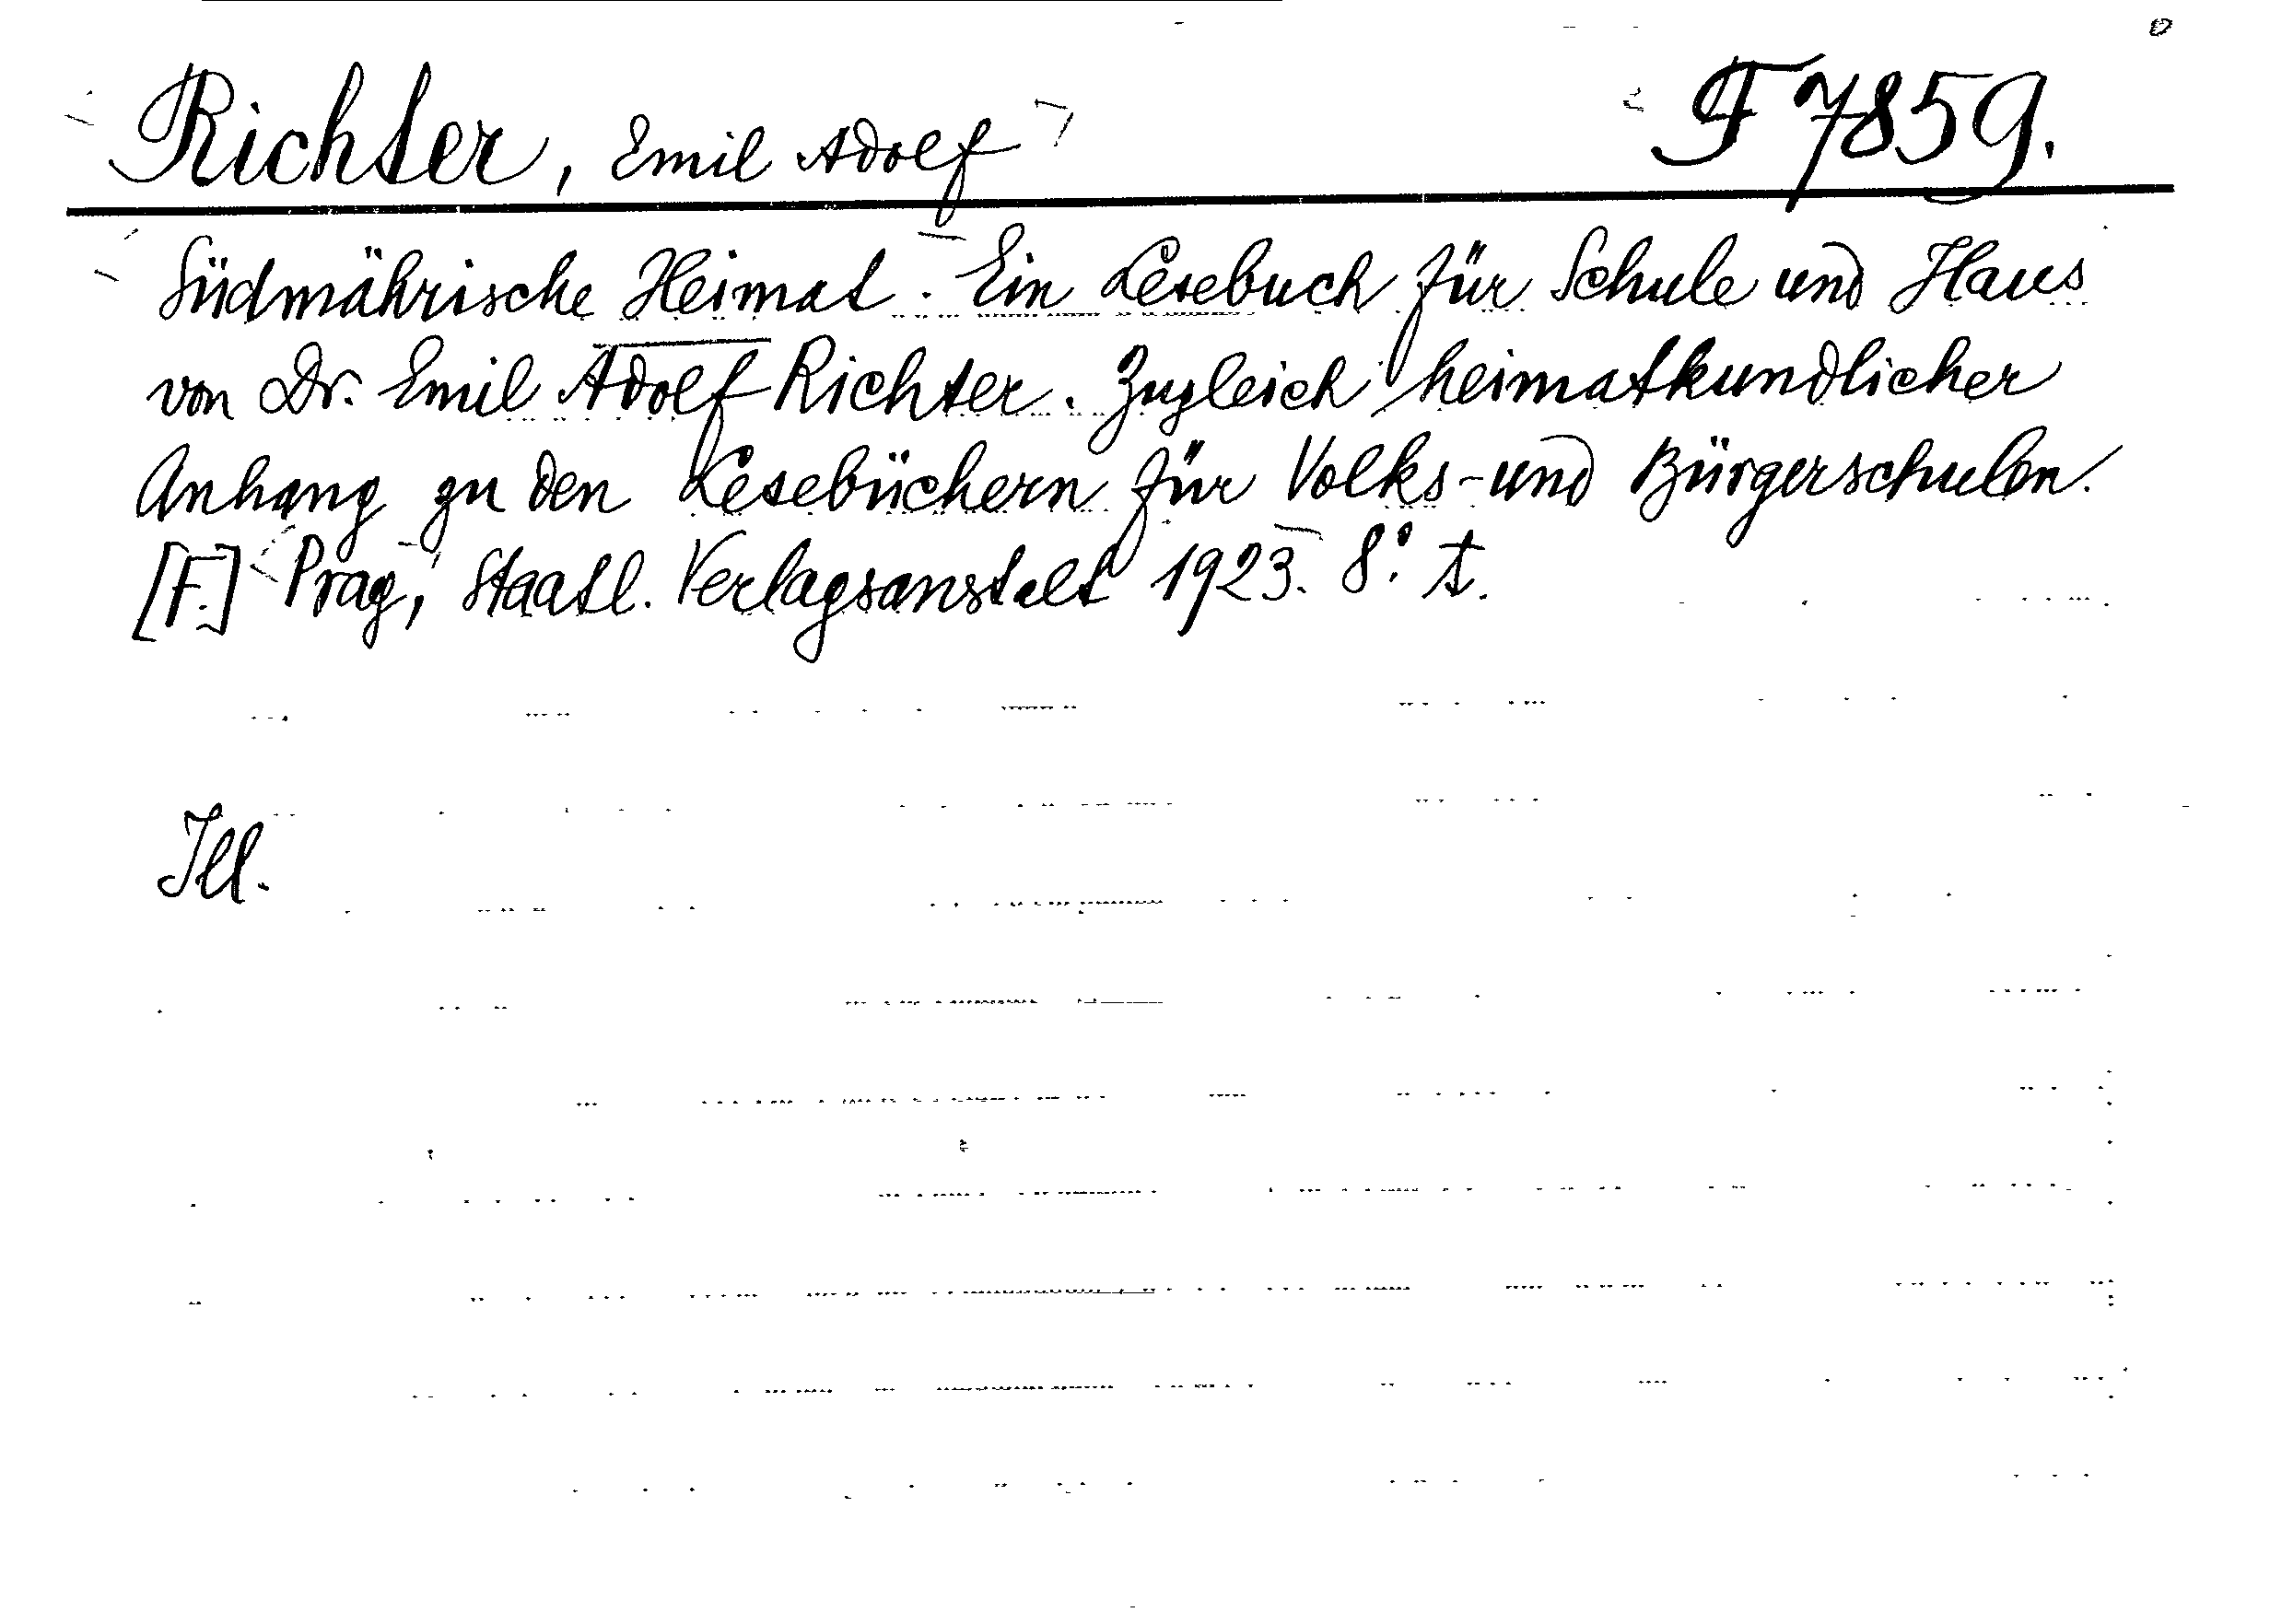 Richter, Emil Adolf F 7859.
Südmährische Heimat. Ein Lesebuch für Schule und Haus
von Dr. Emil Adolf Richter. Zugleich heimatkundlicher
Anhang zu den Lesebüchern für Volks- und Bürgerschulen.
[F.] Prag, Staatl. Verlagsanstalt 1923. 8°.
Ill.